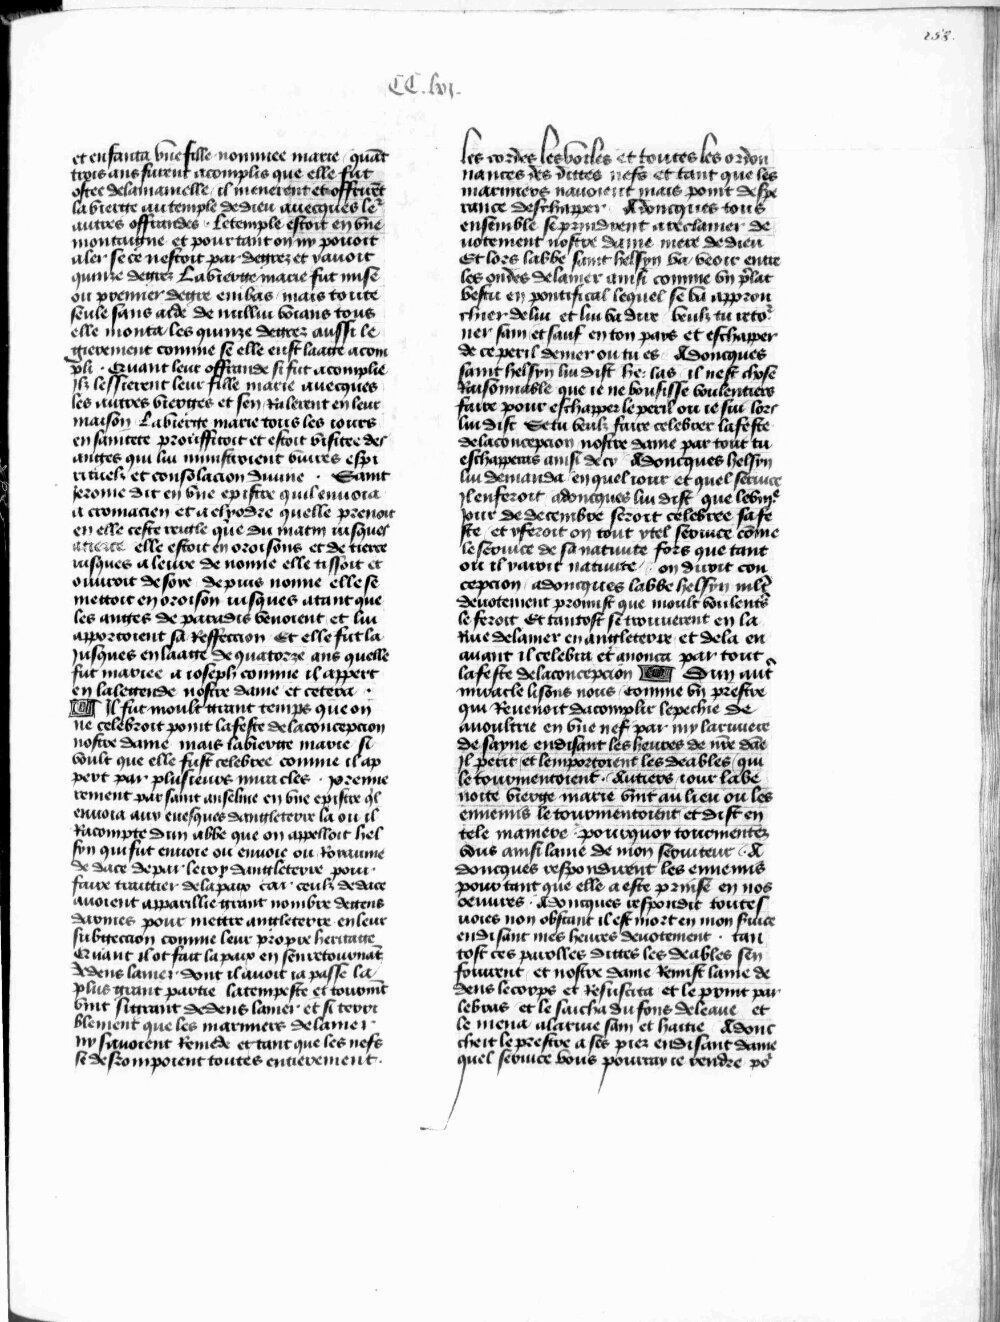 258.
CC.lvi.
et enfanta vne fille nommee marie quāt
trois ans furent acomplis que elle fut
ostee delamamelle il menerent et offrirēt
la vierge au temple de dieu auecques leˢ
autres offrandes . Letemple estoit en vne
montaigne et pour tant on ny pouoit
aler se ce nestoit par degrez et yauoit
quinze degrez La vierge marie fut mise
ou premier degre embas mais toute
seule sans aide de nulluy voians tous
elle monta les quinze degrez aussi le
gierement comme se elle eust laage acom
pli . Quant leur offrande si fut acomplie
Ilz lessierent leur fille marie auecques
les autres vierges et sen Ralerent en leur
maison La vierge marie tous les iours
en saintete prouffitoit et estoit visitee des
anges qui lui ministroient viures espi
rituelz et consolacion diuine . Saint
jerome dit en vne epistre quil enuoia
a cromacien et a elyodre quelle prenoit
en elle ceste reigle que du matin iusques
atierce elle estoit en oroisons et de tierce
iusques a leure de nonne elle tissoit et
ouuroit de soye depuis nonne elle se
mettoit en oroison iusques atant que
les anges de paradis venoient et lui
apportoient sa Reffeccion Et elle fut la
jusques en laage de quatorze ans quelle
fut mariee a ioseph comme il appert
en la legende nostre dame et cetera .
Il fut moult grant temps que on
ne celebroit point la feste de la concepcion
nostre dame mais la vierge marie si
voult que elle fust celebree comme il ap
pert par plusieurs miracles . premie
rement par saint anselme en vne epistre ql
enuoia aux euesques dangleterre la ou il
Racompte dun abbe que on appelloit hel
syn qui fut enuoie ou enuoie ou Royaume
de dace de par le roy dangleterre pour
faire traittier de la paix car ceulx de dace
auoient appareillie grant nombre de gens
darmes pour mettre angleterre en leur
subgeccion comme leur propre heritage
Quant il ot fait la paix en sen retournāt
dedens la mer dont il auoit ia passe la
plus grant partie la tempeste et tourmēt
vint si grant dedens la mer et si terri
blement que les mariniers de la mer
ny sauoient Remede et tant que les nefs
se desRompoient toutes entierement .
les cordes les voiles et toutes les ordon
nances des dittes nefs et tant que les
mariniers nauoient mais point de spe
rance deschapper Adoncques tous
ensemble se prindrent a reclamer de
uotement nostre dame mere de dieu
Et lors labbe saint helsyn va veoir entre
les ondes de la mer ainsi comme vn plat
vestu en pontifical lequel se va approu
chier de lui et lui va dire veulz tu retoʳ
ner sain et sauf en ton pays et eschapper
de ce peril de mer ou tu es Adoncques
saint helsyn lui dist he las il nest chose
Raisonnable que ie ne voulsisse voulentiers
faire pour eschapper le peril ou ie sui lors
lui dist Se tu veulz faire celebrer la feste
de la concepcion nostre dame par tout tu
eschapperas ainsi de cy Adoncques helsyn
lui demanda en quel iour et quel seruice
Il en feroit adoncques lui dist que le viijᵉ
jour de decembre seroit celebree sa fe
ste et y feroit on tout ytel seruice cōme
le seruice de sa natiuite fors que tant
ou il yauoit natiuite on diroit con
cepcion adoncques labbe helsyn
deuotement promist que moult voulentˢ
le feroit Et tantost se trouuerent en la
Riue de la mer en angleterre et de la en
auant il celebra et anonca par tout
la feste de la concepcion Dun autʳ
miracle lisons nous comme vn prestre
qui Reuenoit dacomplir le pechie de
auoultrie en vne nef par my la riuiere
de sayne en disant les heures de nrē dāe
Il perit et lemportoient les deables qui
le tourmentoient . Autiers iour la be
noite vierge marie vint au lieu ou les
ennemis le tourmentoient et dist en
tele maniere . pourquoy tourmentez
vous ainsi lame de mon seruiteur . A
doncques respondirent les ennemis
pour tant que elle a este prinse en nos
oeuures . Adoncques respondit toutes
voies non obstant il est mort en mon seruice
en disant mes heures deuotement . tan
tost ces parolles dittes les deables sen
fouirent et nostre dame Remist lame de
dens le corps et Resuscita et le print par
le bras et le sacha du fons de leaue et
le mena a la riue sain et haitie Adonc
cheit le prestre a ses piez en disant dame
quel seruice vous pourray ie rendre poʳ